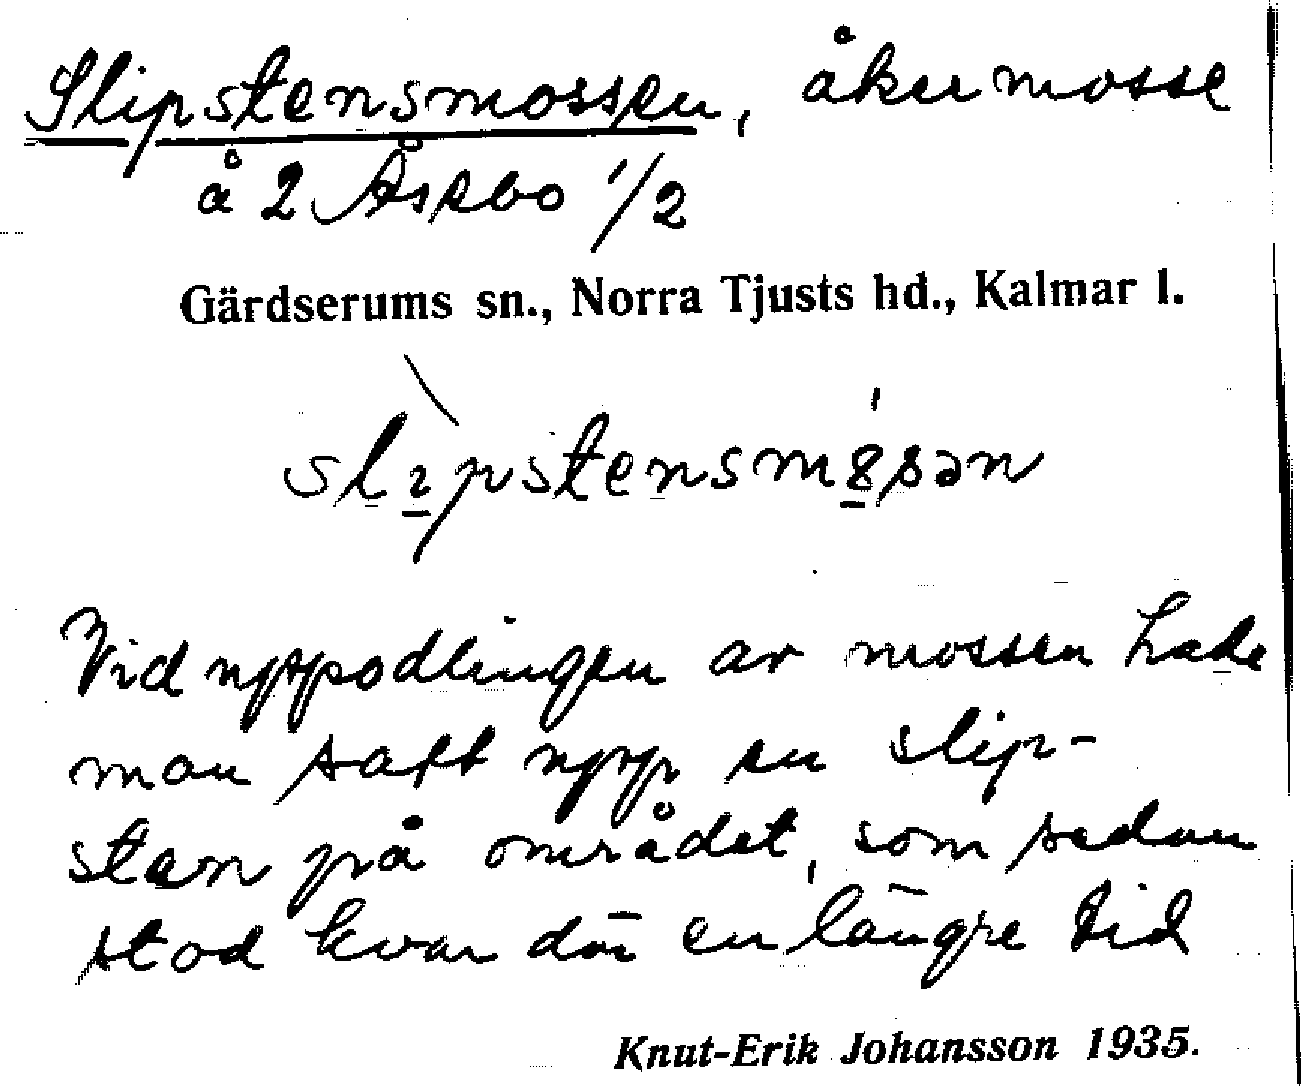 Slipstensmossen, åkermosse
å 2 Åsebo 1/2
Gärdserums sn., Norra Tjusts hd., Kalmar l.
slipstensmȣsən
Vid uppodlingen av mossen hade
man satt upp en slip-
sten på området, som sedan
stod kvar där en längre tid
Knut-Erik Johansson 1935.